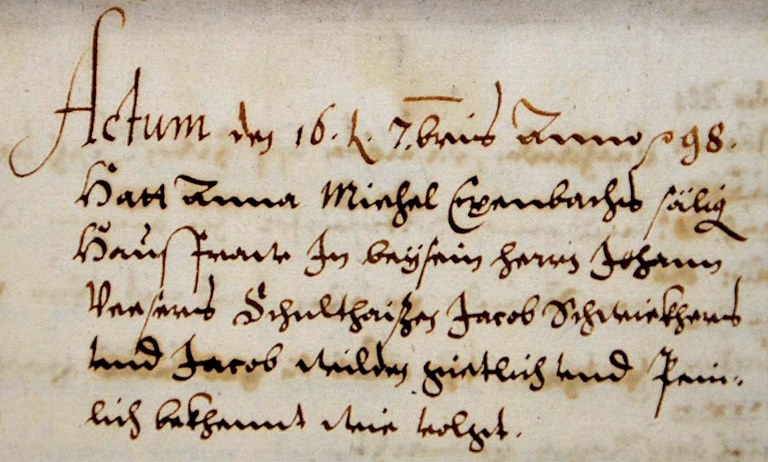 Actum den 16. t. 7.bris Anno p 98.
Hatt Anna Michel Expenbachs sälig
Haussfraw In beysein herrn Johann
Schulthaißen Jacob Schwickhers
und Jacob Weilden gietlich und Pein-
lich bekhennt wie volgt.